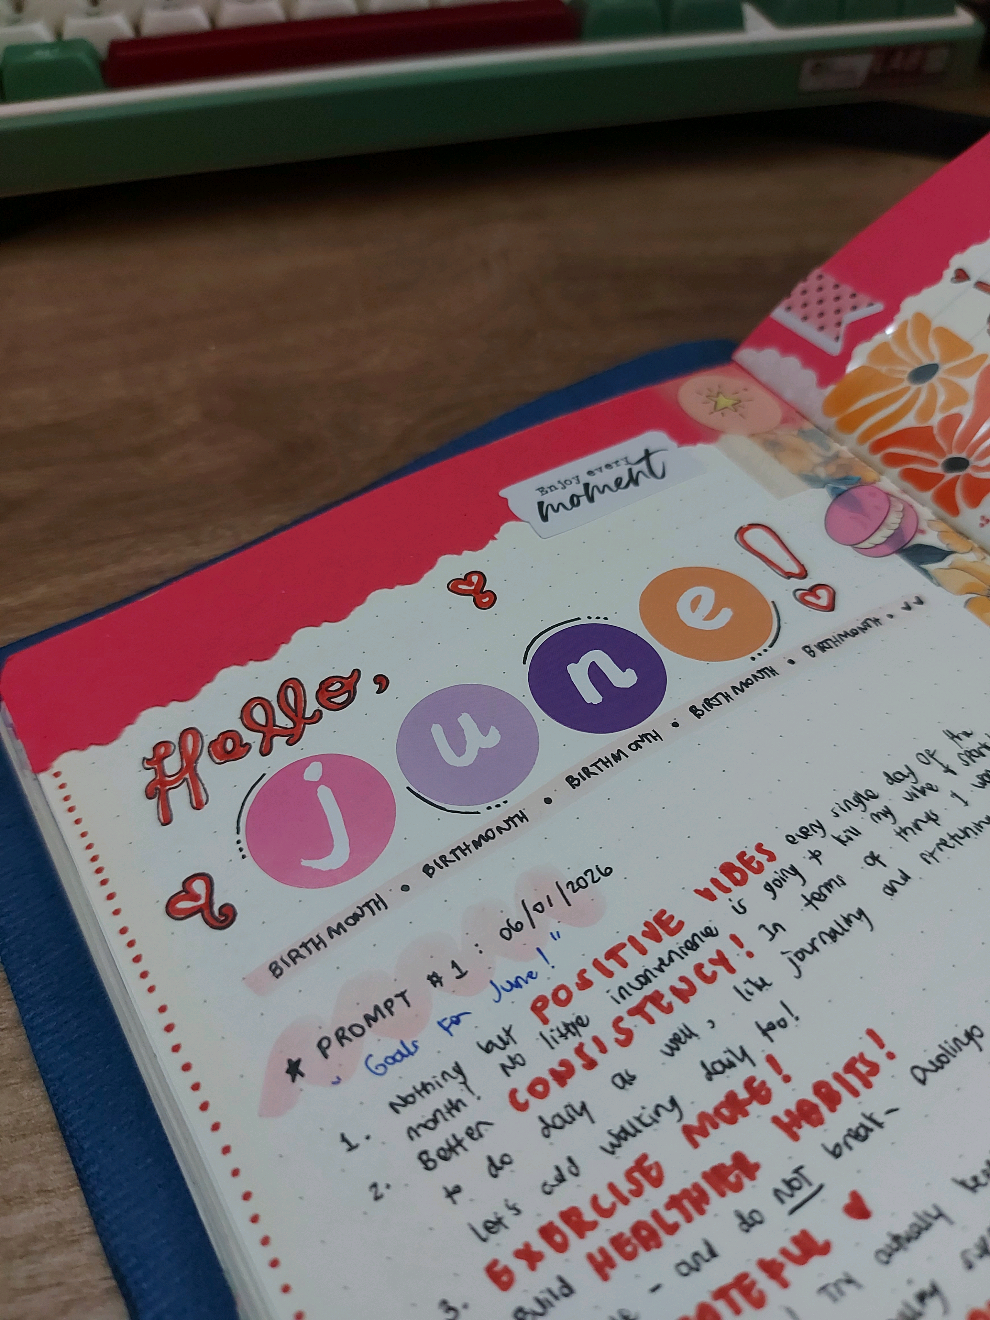 Enjoy every
moment
Hello,
june!
BIRTHMONTH • BIRTHMONTH • BIRTHMONTH • BIRTHMONTH • BIRTHMONTH •
★ PROMPT #1: 06/01/2026
"Goals For June!"
1. Nothing but POSITIVE VIBES every single day OF the
month! No little inconvenience is going to kill my vibe &
2. Better CONSISTENCY! In terms of things I
to do daily as well, like journaling and stretching
Let's add walking daily too!
EXERCISE MORE!
3. Build HEALTHIER HABITS!
- and do NOT break-
I Try actually